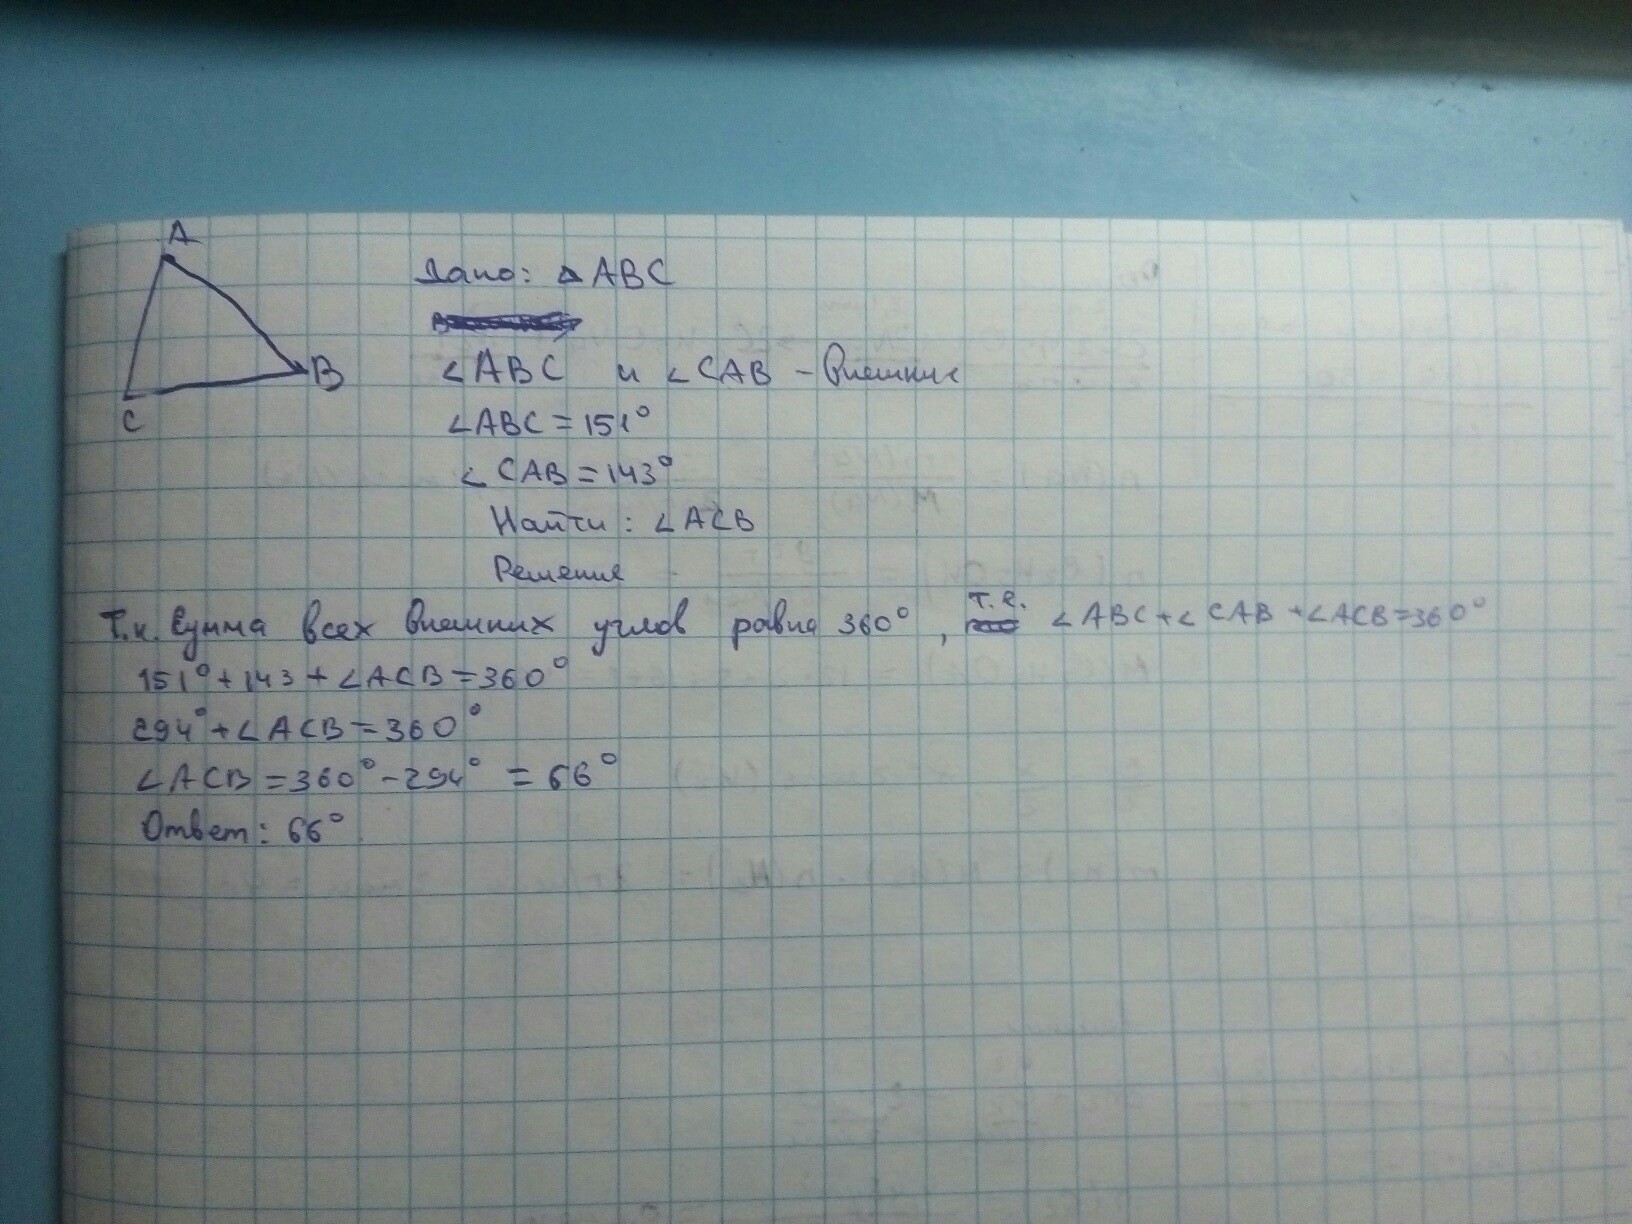 A
B
C
Дано: △ABC
∠ABC и ∠CAB – внешние
∠ABC = 151°
∠CAB = 143°
Найти: ∠ACB
Решение
Т.к. Сумма всех внешних углов равна 360°, т.е. ∠ABC + ∠CAB + ∠ACB = 360°
151° + 143 + ∠ACB = 360°
294° + ∠ACB = 360°
∠ACB = 360° – 294° = 66°
Ответ: 66°.